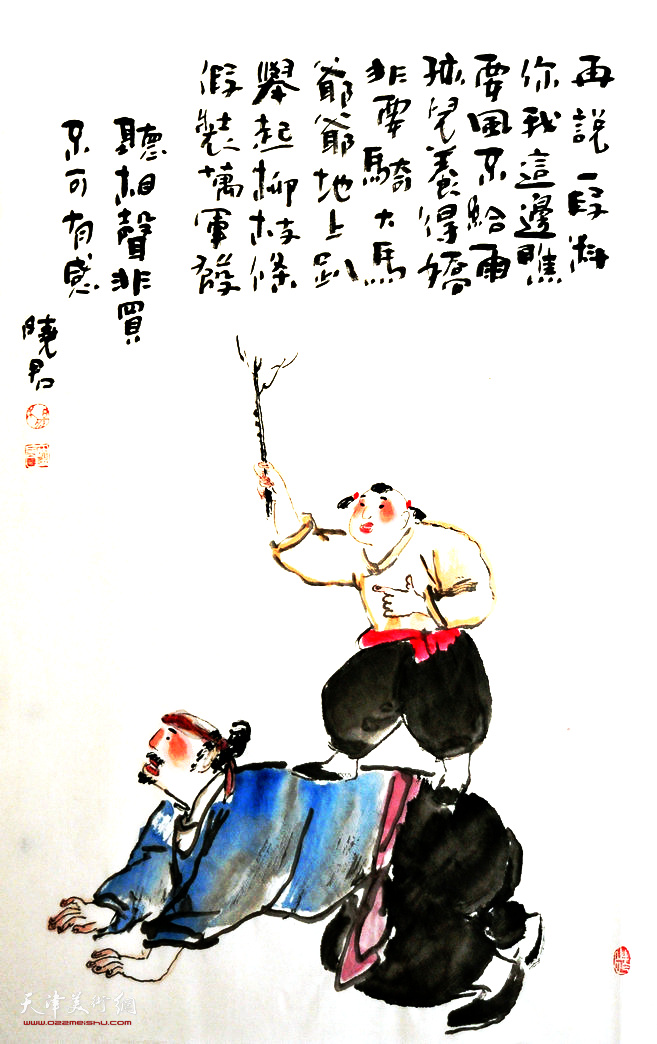 再説一段
你我這邊瞧
要風不給雨
孩兒養得嬌
非要騎大馬
爺爺地上趴
舉起柳枝條
假裝萬軍發
聽相聲非買
不可有感
曉君
天津美術網
www.022meishu.com